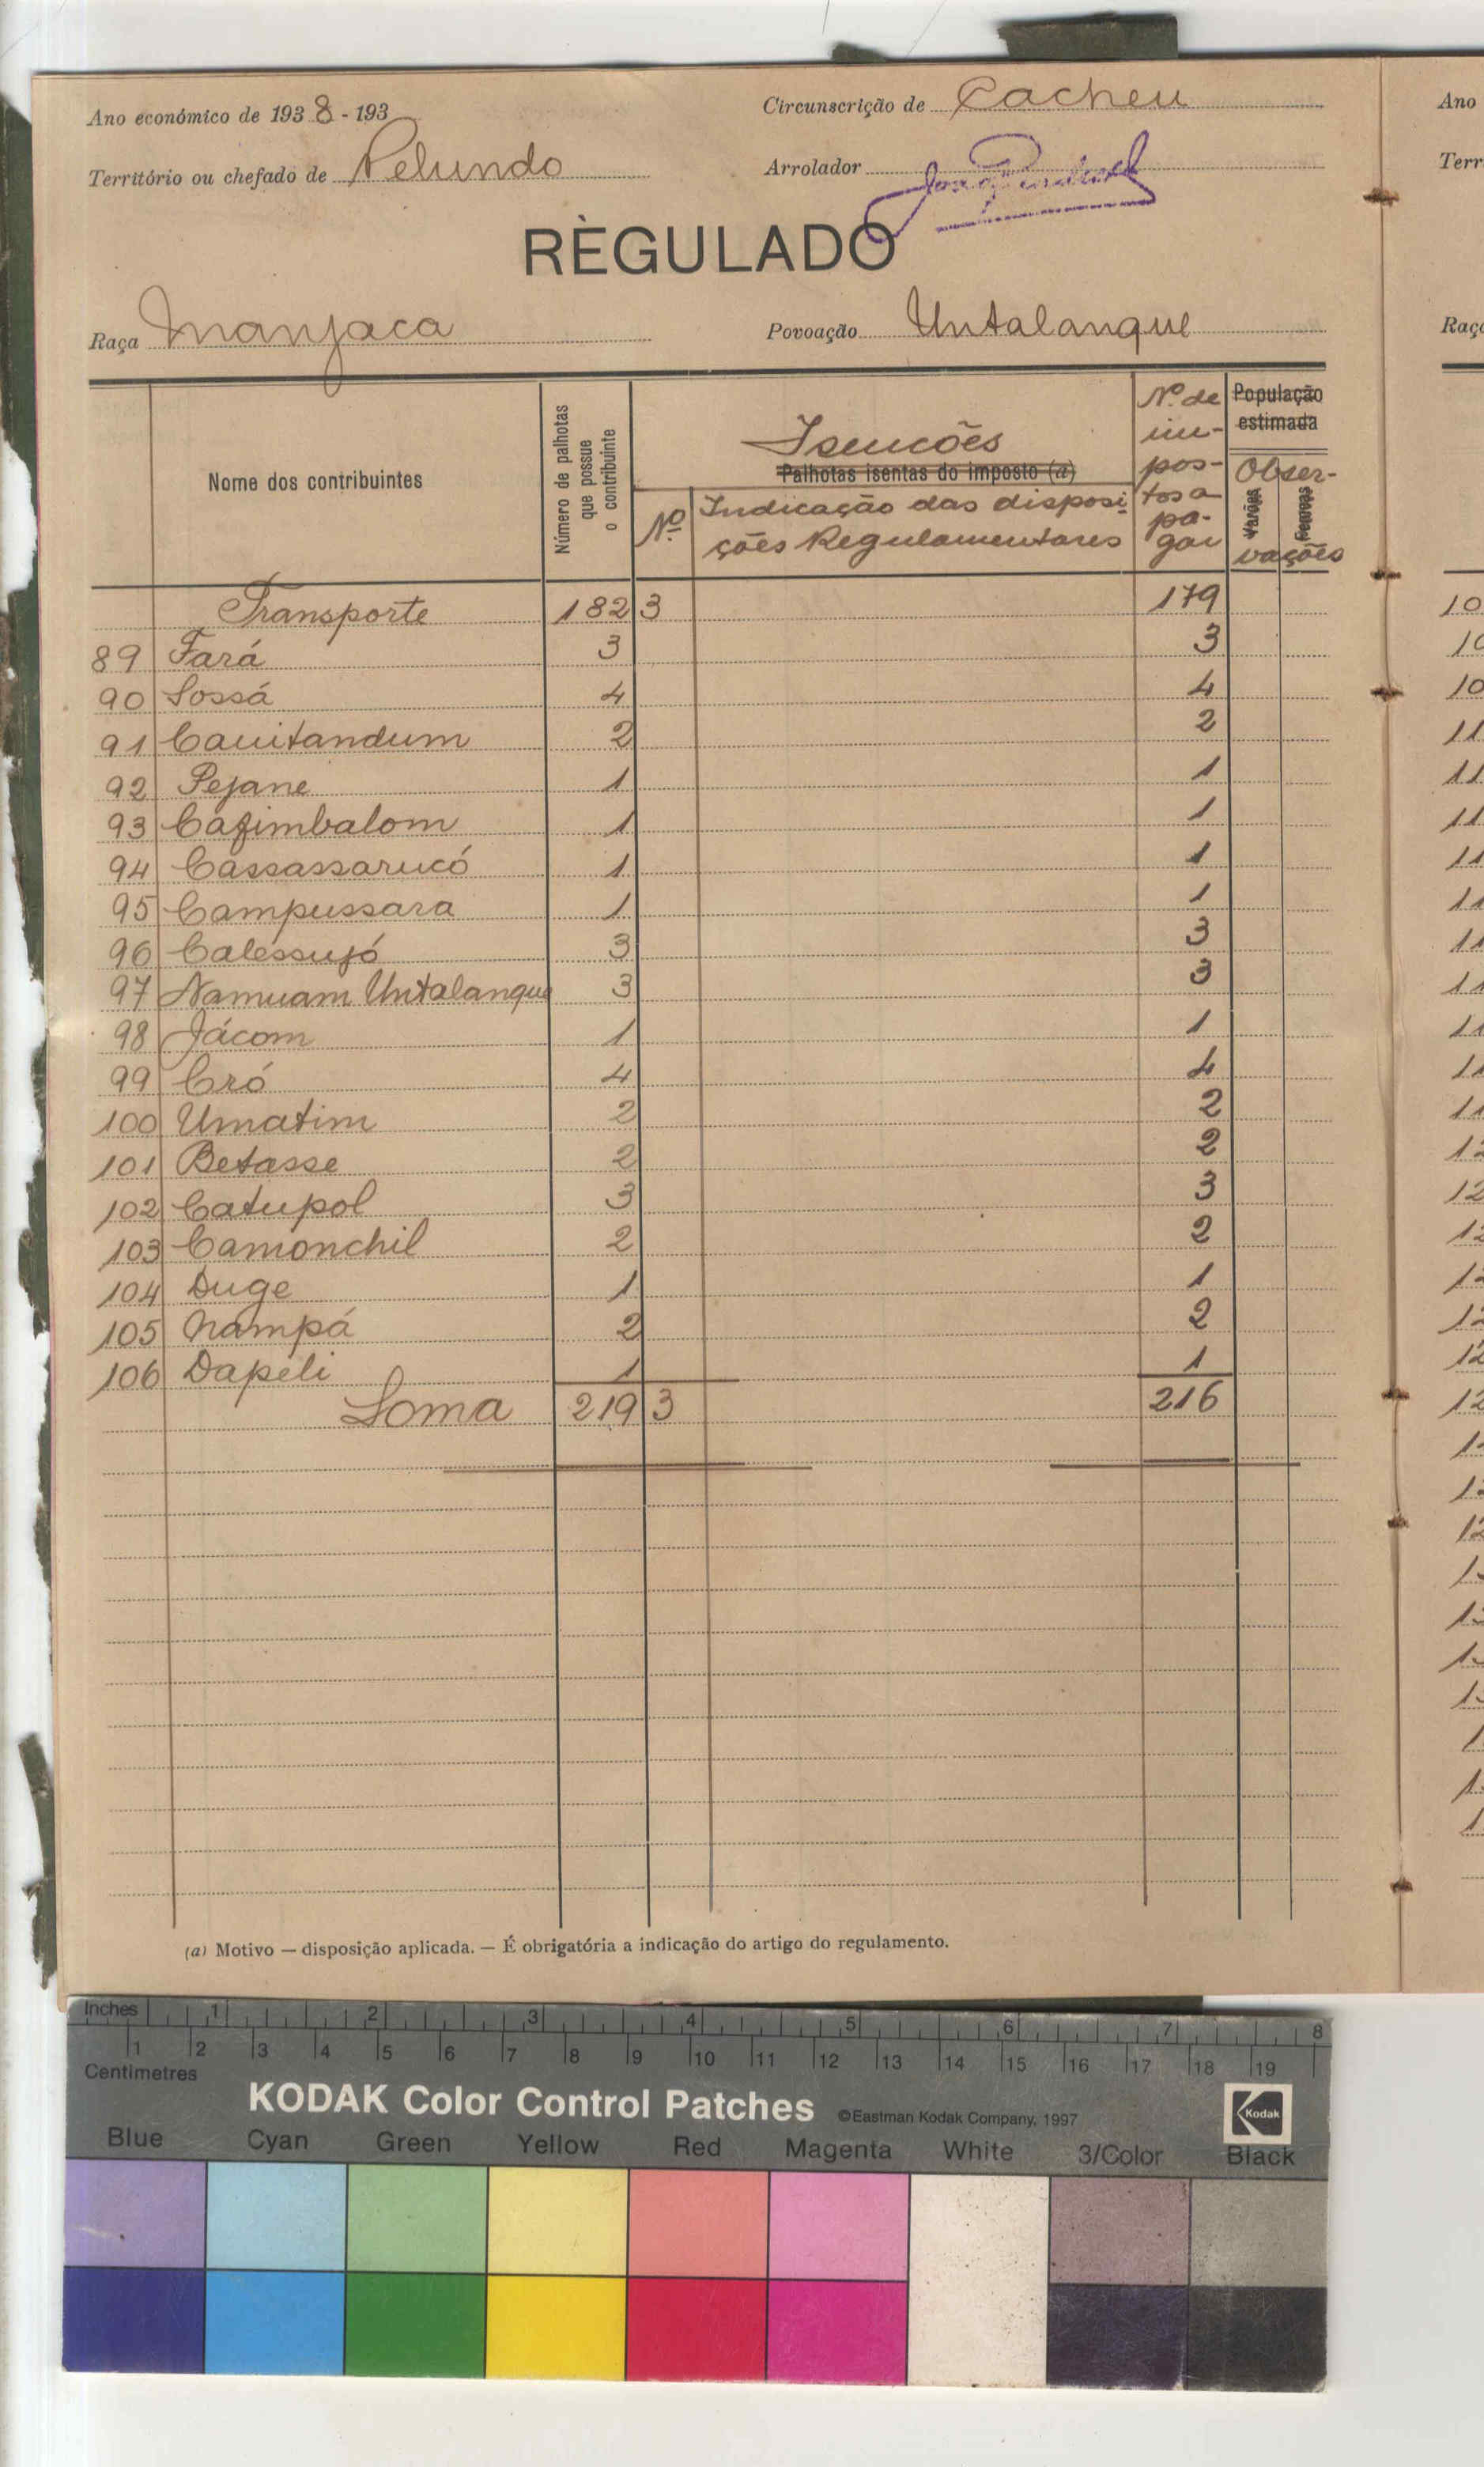 Ano económico de 1938-193
Circunscrição de Cacheu
Território ou chefado de Pelundo
Arrolador
RÈGULADO
Raça Manjaca
Povoação Untalanque
Nome dos contribuintes
Número de palhotas que possue o contribuinte
Isenções
Palhotas isentas do imposto (a)
Nº
Indicação das disposi-
ções Regulamentares
Nº de im-
pos-
tos a
pa-
gar
População estimada
Obser-
vações
Varões
Femeas
Transporte 182 3 179
89 Fará 3 3
90 Sossá 4 4
91 Cauitandum 2 2
92 Pejane 1 1
93 Cafimbalom 1 1
94 Cassassarucó 1 1
95 Campussara 1 1
96 Calessujó 3 3
97 Namuam Untalanque 3 3
98 Jácom 1 1
99 Cró 4 4
100 Umatim 2 2
101 Betasse 2 2
102 Catupol 3 3
103 Camonchil 2 2
104 Duge 1 1
105 Nampá 2 2
106 Dapéli 1 1
Soma 219 3 216
(a) Motivo — disposição aplicada. — É obrigatória a indicação do artigo do regulamento.
Ano
Terr
Raça
Inches 1 2 3 4 5 6 7 8
Centimetres 1 2 3 4 5 6 7 8 9 10 11 12 13 14 15 16 17 18 19
KODAK Color Control Patches ©Eastman Kodak Company, 1997 Kodak
Blue Cyan Green Yellow Red Magenta White 3/Color Black